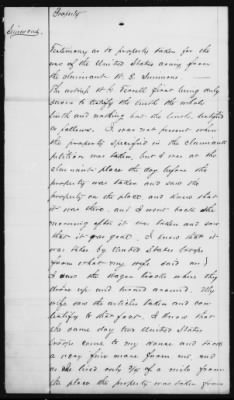 Property
Testimony as to property taken for the
use of the United States army from
the claimant W. E. Simmons.
The witness W. G. Ferrell first being duly
sworn to testify the truth the whole
truth and nothing but the truth, testifies
as follows. I was not present when
the property specified in the claimants
petition was taken, but I was at the
claimants place the day before the
property was taken and saw the
property on the place, and know that
it was there, and I went back the
morning after it was taken and saw
that it was gone. I know that it
was taken by United States troops
from what my wife said and
I saw the wagon tracks where they
drove up and turned around. My
wife saw the articles taken and can
testify to that fact. I know that
the same day two United States
troops come to my house and took
a very fine mare from me, and
as I lived only 3/4 of a mile from
the place the property was taken from